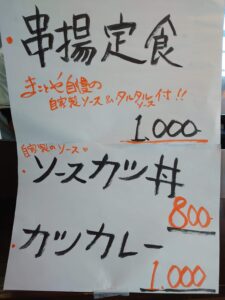 ・串揚定食
まことや自慢の
自家製ソース&タルタルソース付!!
1.000
自家製のソース♥
・ソースカツ丼
800-
・カツカレー
1.000